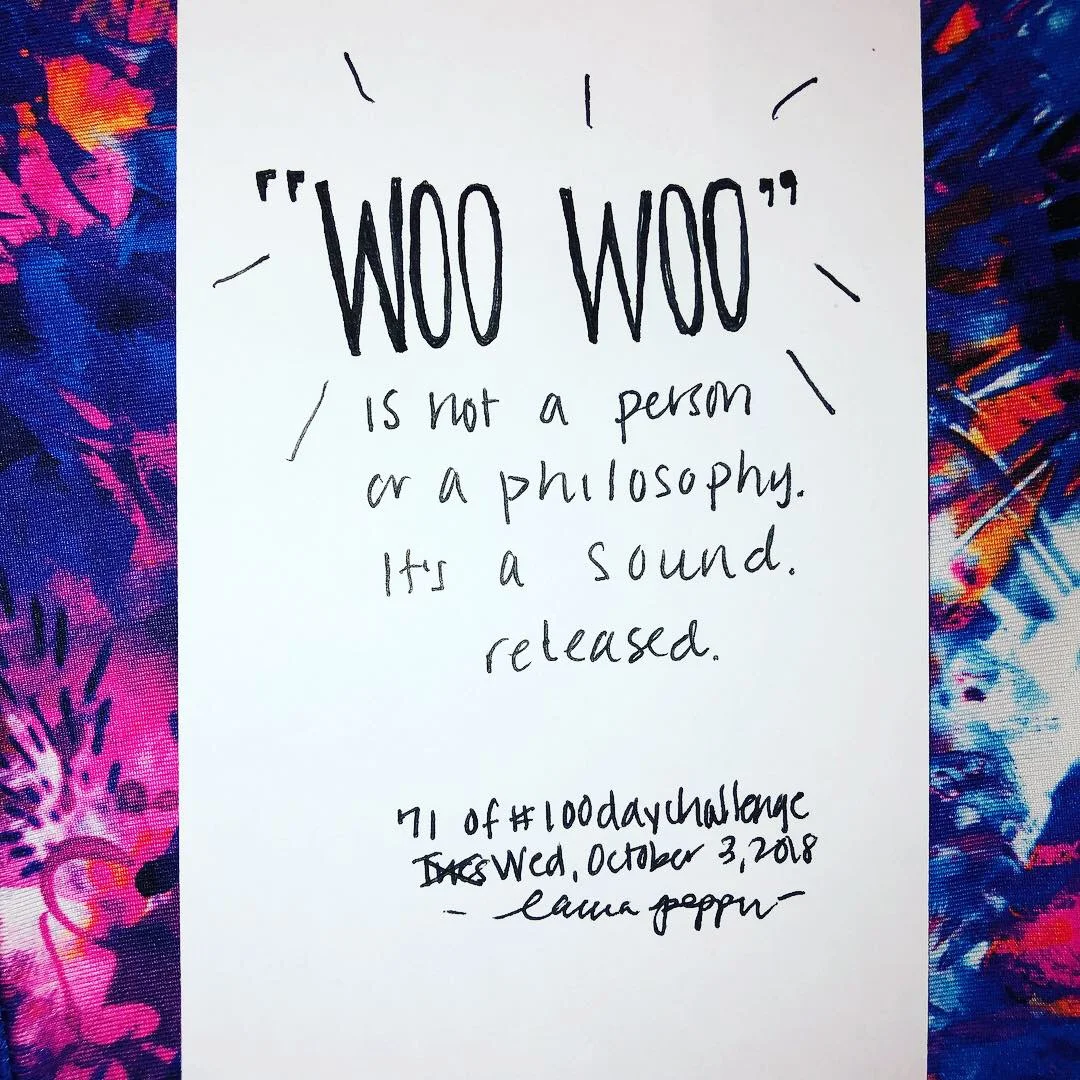 "WOO WOO"
is not a person
or a philosophy.
It's a sound.
released.
71 of #100daychallenge
Tues Wed, October 3, 2018
- laura pepper -